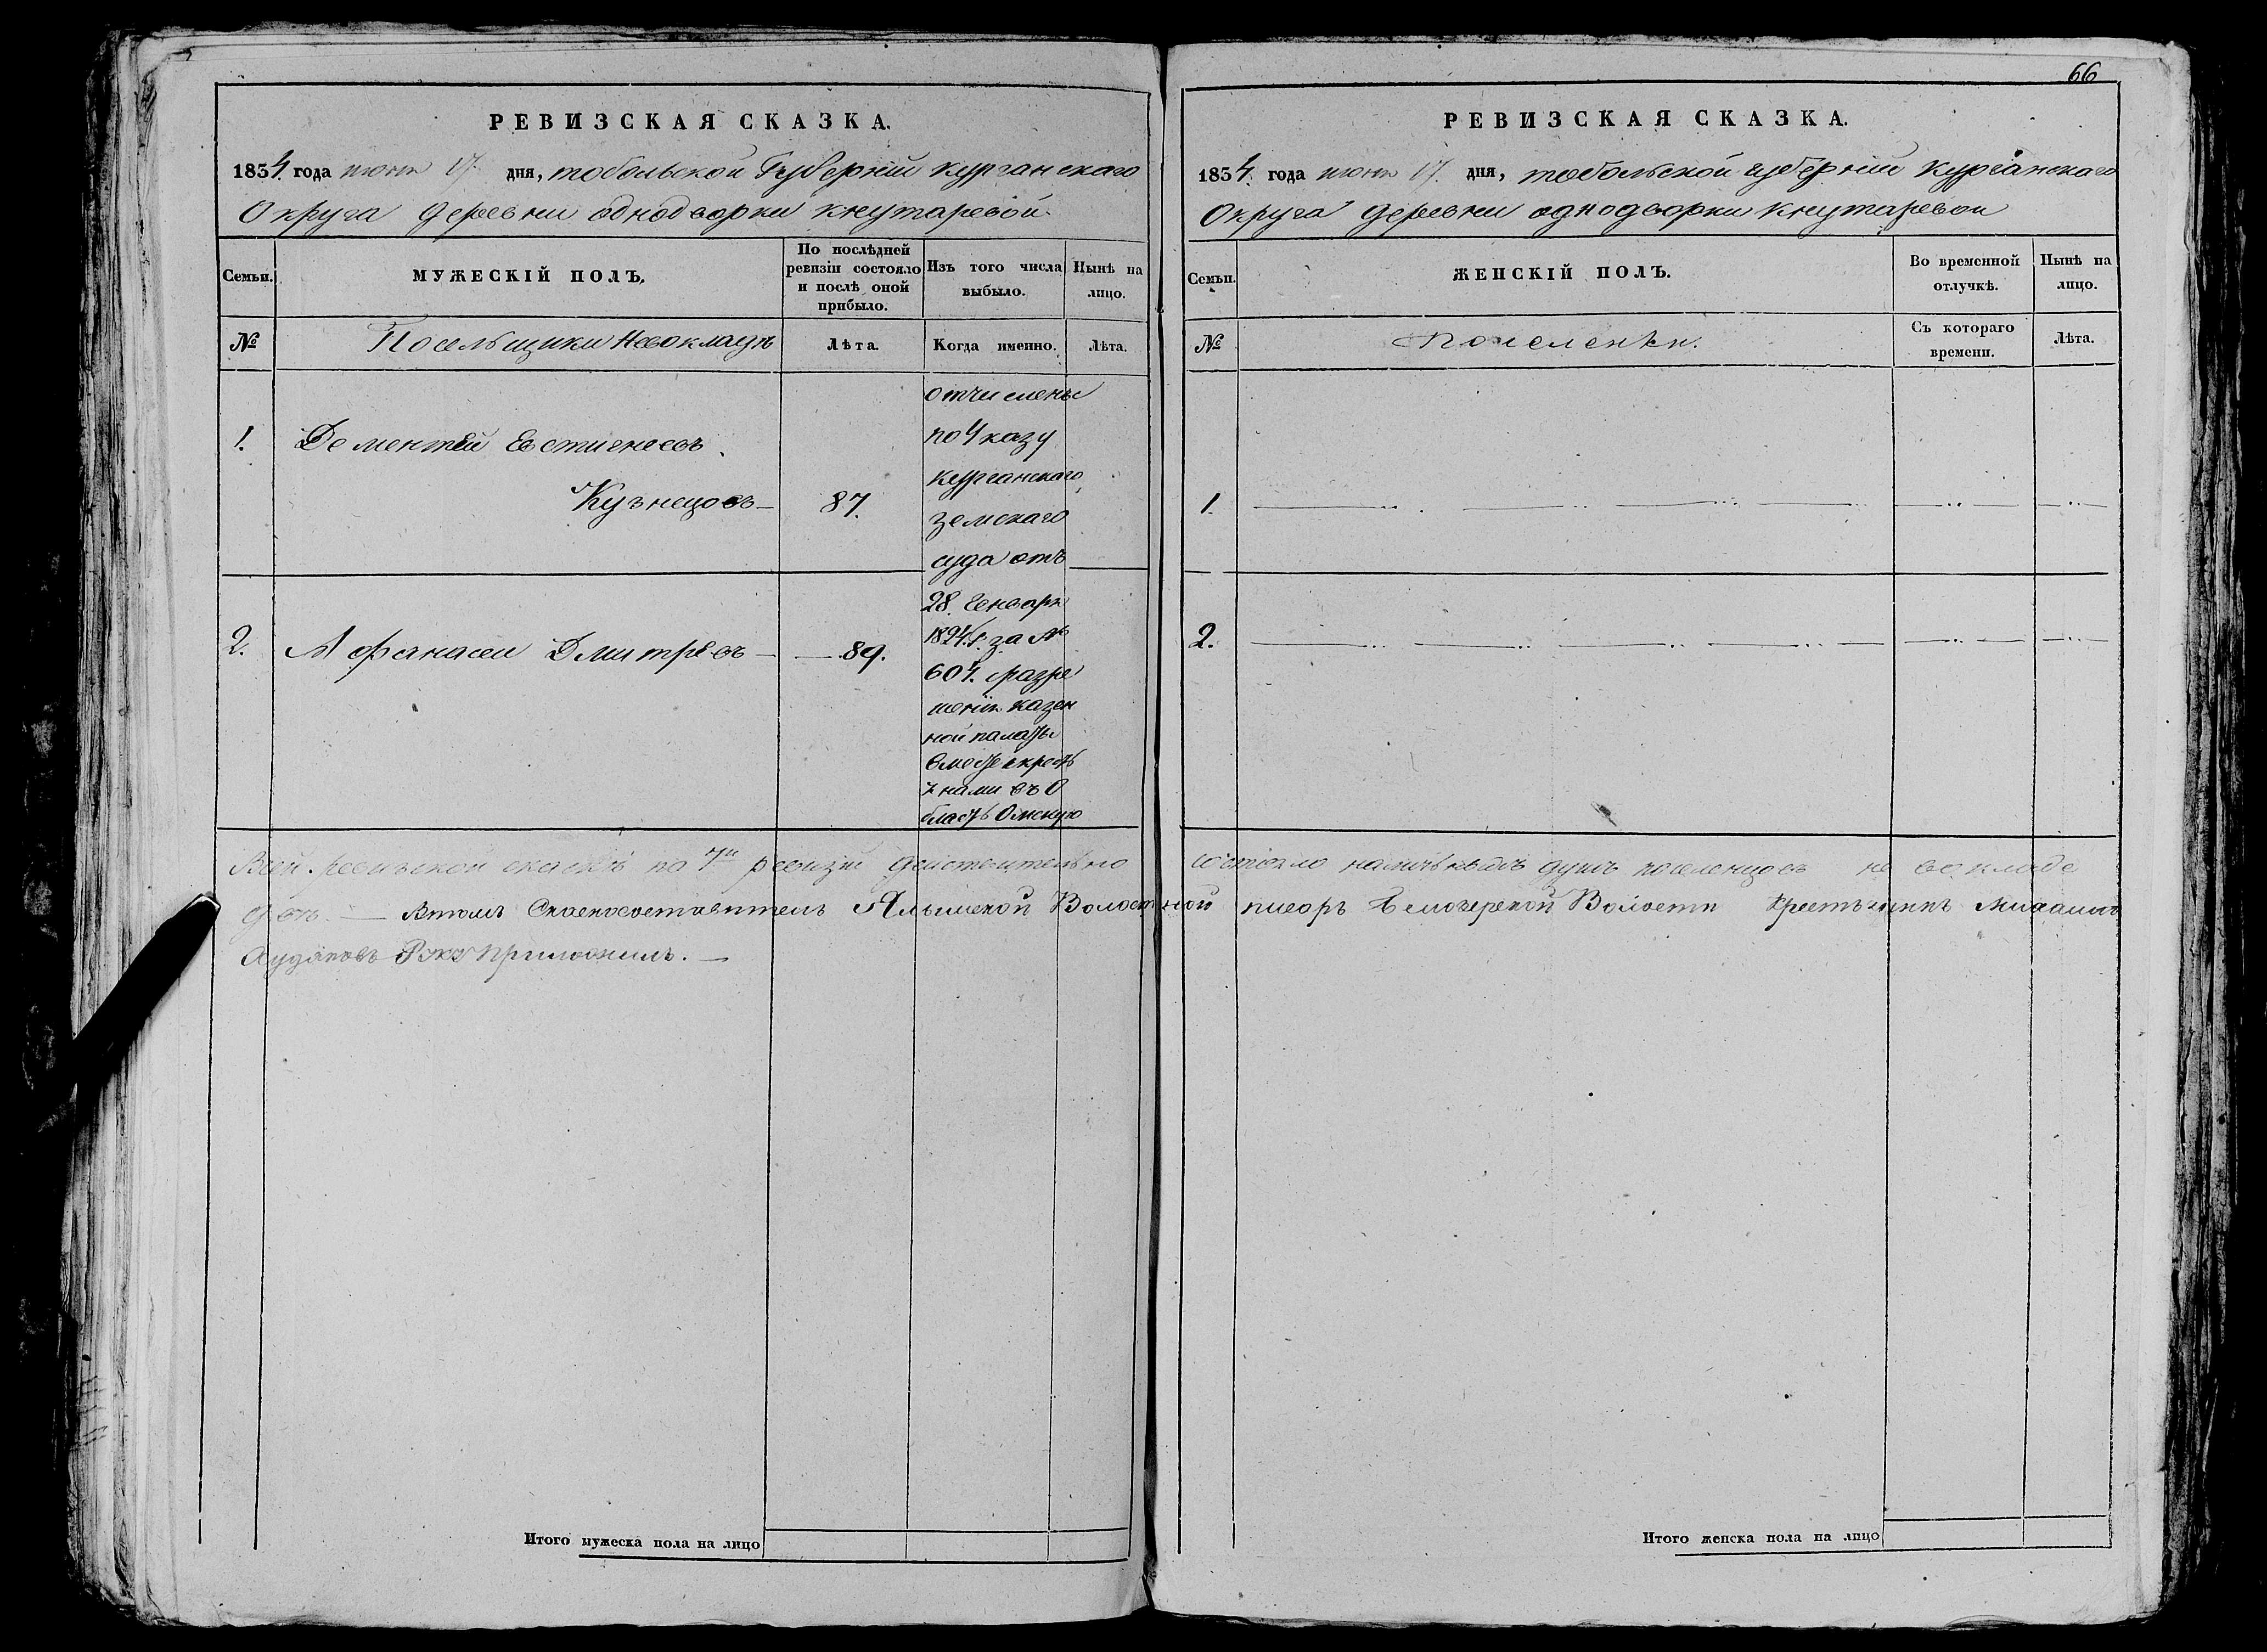 66
РЕВИЗСКАЯ СКАЗКА.
1834 года июня 17 дня, тобольской Губерніи курганскаго
Округа деревни однодворки кнутаревой
Семьи. МУЖЕСКІЙ ПОЛЪ. По послѣдней ревизіи состояло и послѣ оной прибыло. Изъ того числа выбыло. Нынѣ на лицо.
№ Посельщики Лѣта. Когда именно. Лѣта.
1. Дементей Евстигнеевъ
Кузнецовъ 87.
2. Афанасеи Дмитревъ 89.
отчислены
по Указу
курганскаго
земскаго
суда отъ
28. Генваря
1824. за №
604. разре
шенія казен
ной палаты
въ О
бласть Омскую
РЕВИЗСКАЯ СКАЗКА.
1834 года июня 17 дня, тобольской губерніи курганскаго
Округа деревни однодворки кнутаревои
Семьи. ЖЕНСКІЙ ПОЛЪ. Во временной отлучкѣ. Нынѣ на лицо.
№ Съ котораго времени. Лѣта.
1.
2.
ревизской по 7й ревизіи действительно состояло душъ поселенцовъ не
Волостной писарь Белозерской Волости крестьянинъ
руку приложилъ.
Итого мужеска пола на лицо
Итого женска пола на лицо